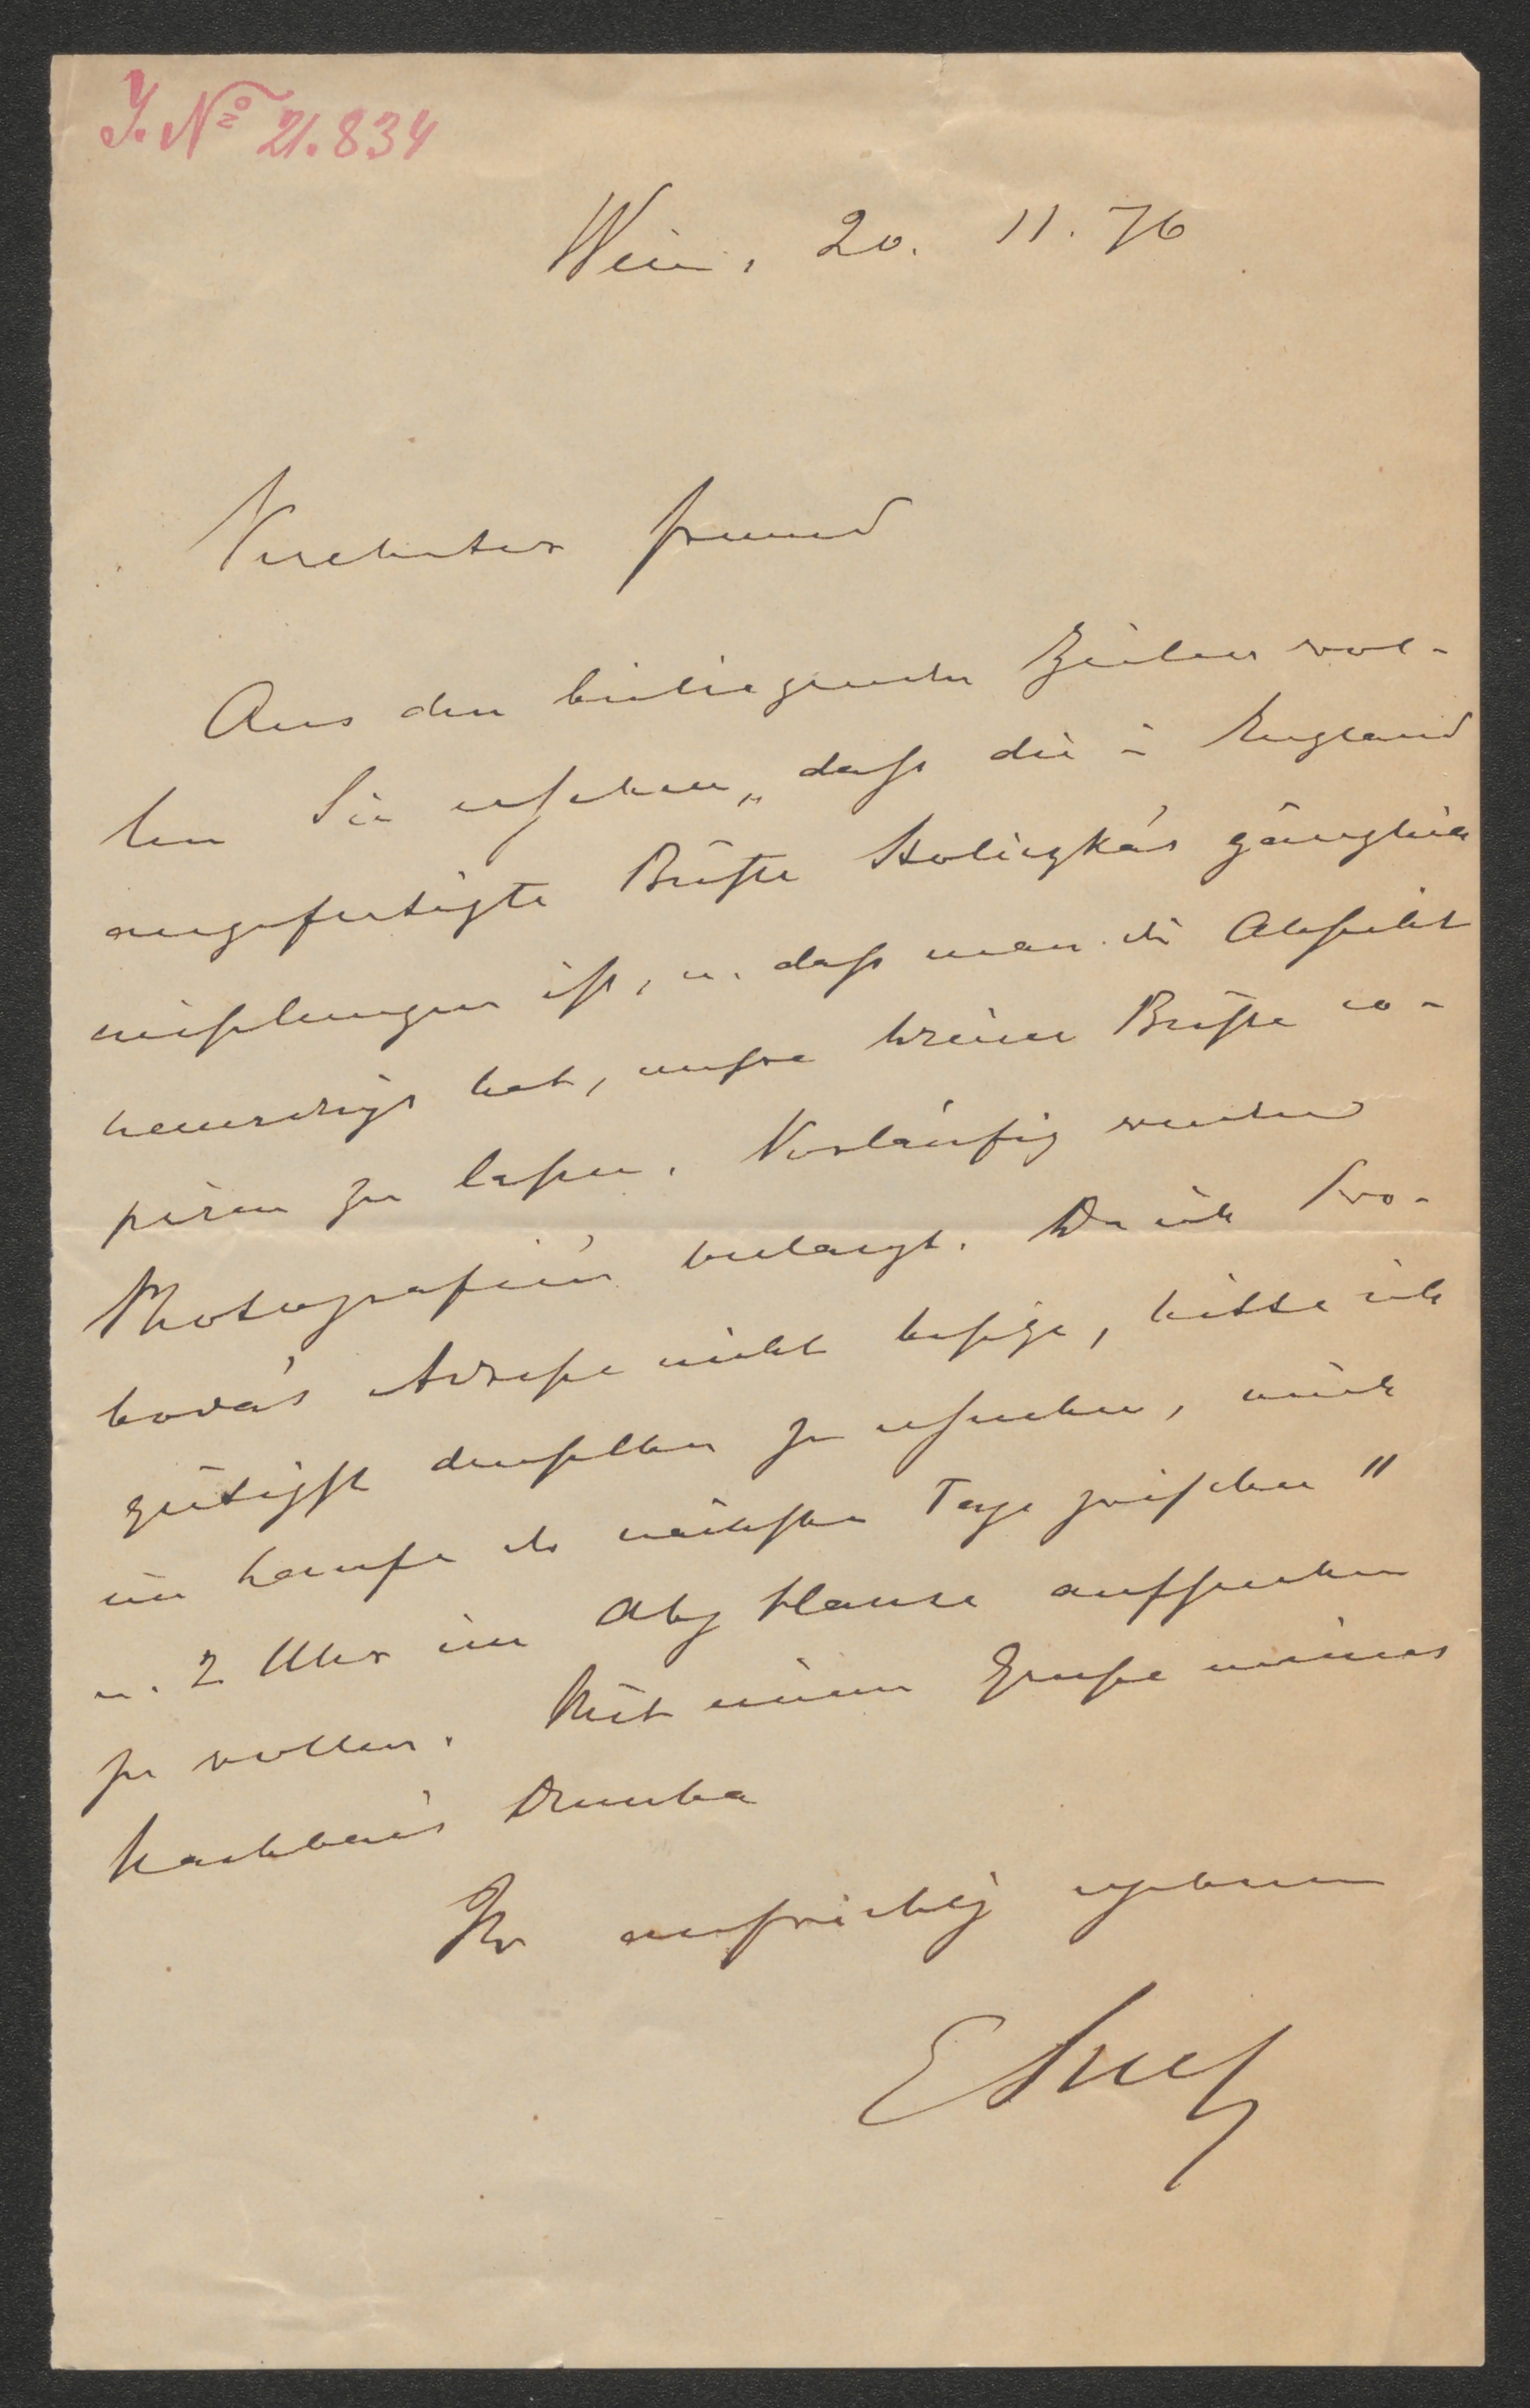 J. No 21.834
Wien, 20. 11. 76
Verehrter Freund
Aus den beiliegenden Zeilen wol-
len Sie ersehen, daß die in England
angefertigte Büste Stoliczka's gänzlich
mißlungen ist, u. daß man die Absicht
hat, unsre kleine Büste co-
piren zu lassen. Vorläufig werden
Photografien verlangt. Da ich Swo-
boda's Adresse nicht besitze, bitte ich
gütigst denselben zu ersuchen, mich
im Laufe der nächsten Tage zwischen 11
u. 2 Uhr im Abg Hause aufsuchen
zu wollen. Mit einem Gruße meines
Nachbar's Dumba
Ihr aufrichtig ergebener
ESueß